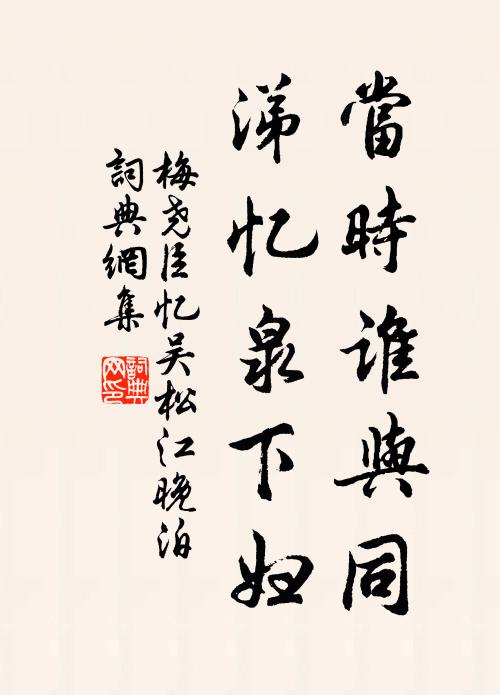 當時誰與同
涕忆泉下妇
梅尧臣忆吴松江晚泊
詞典網集
詞典
网印